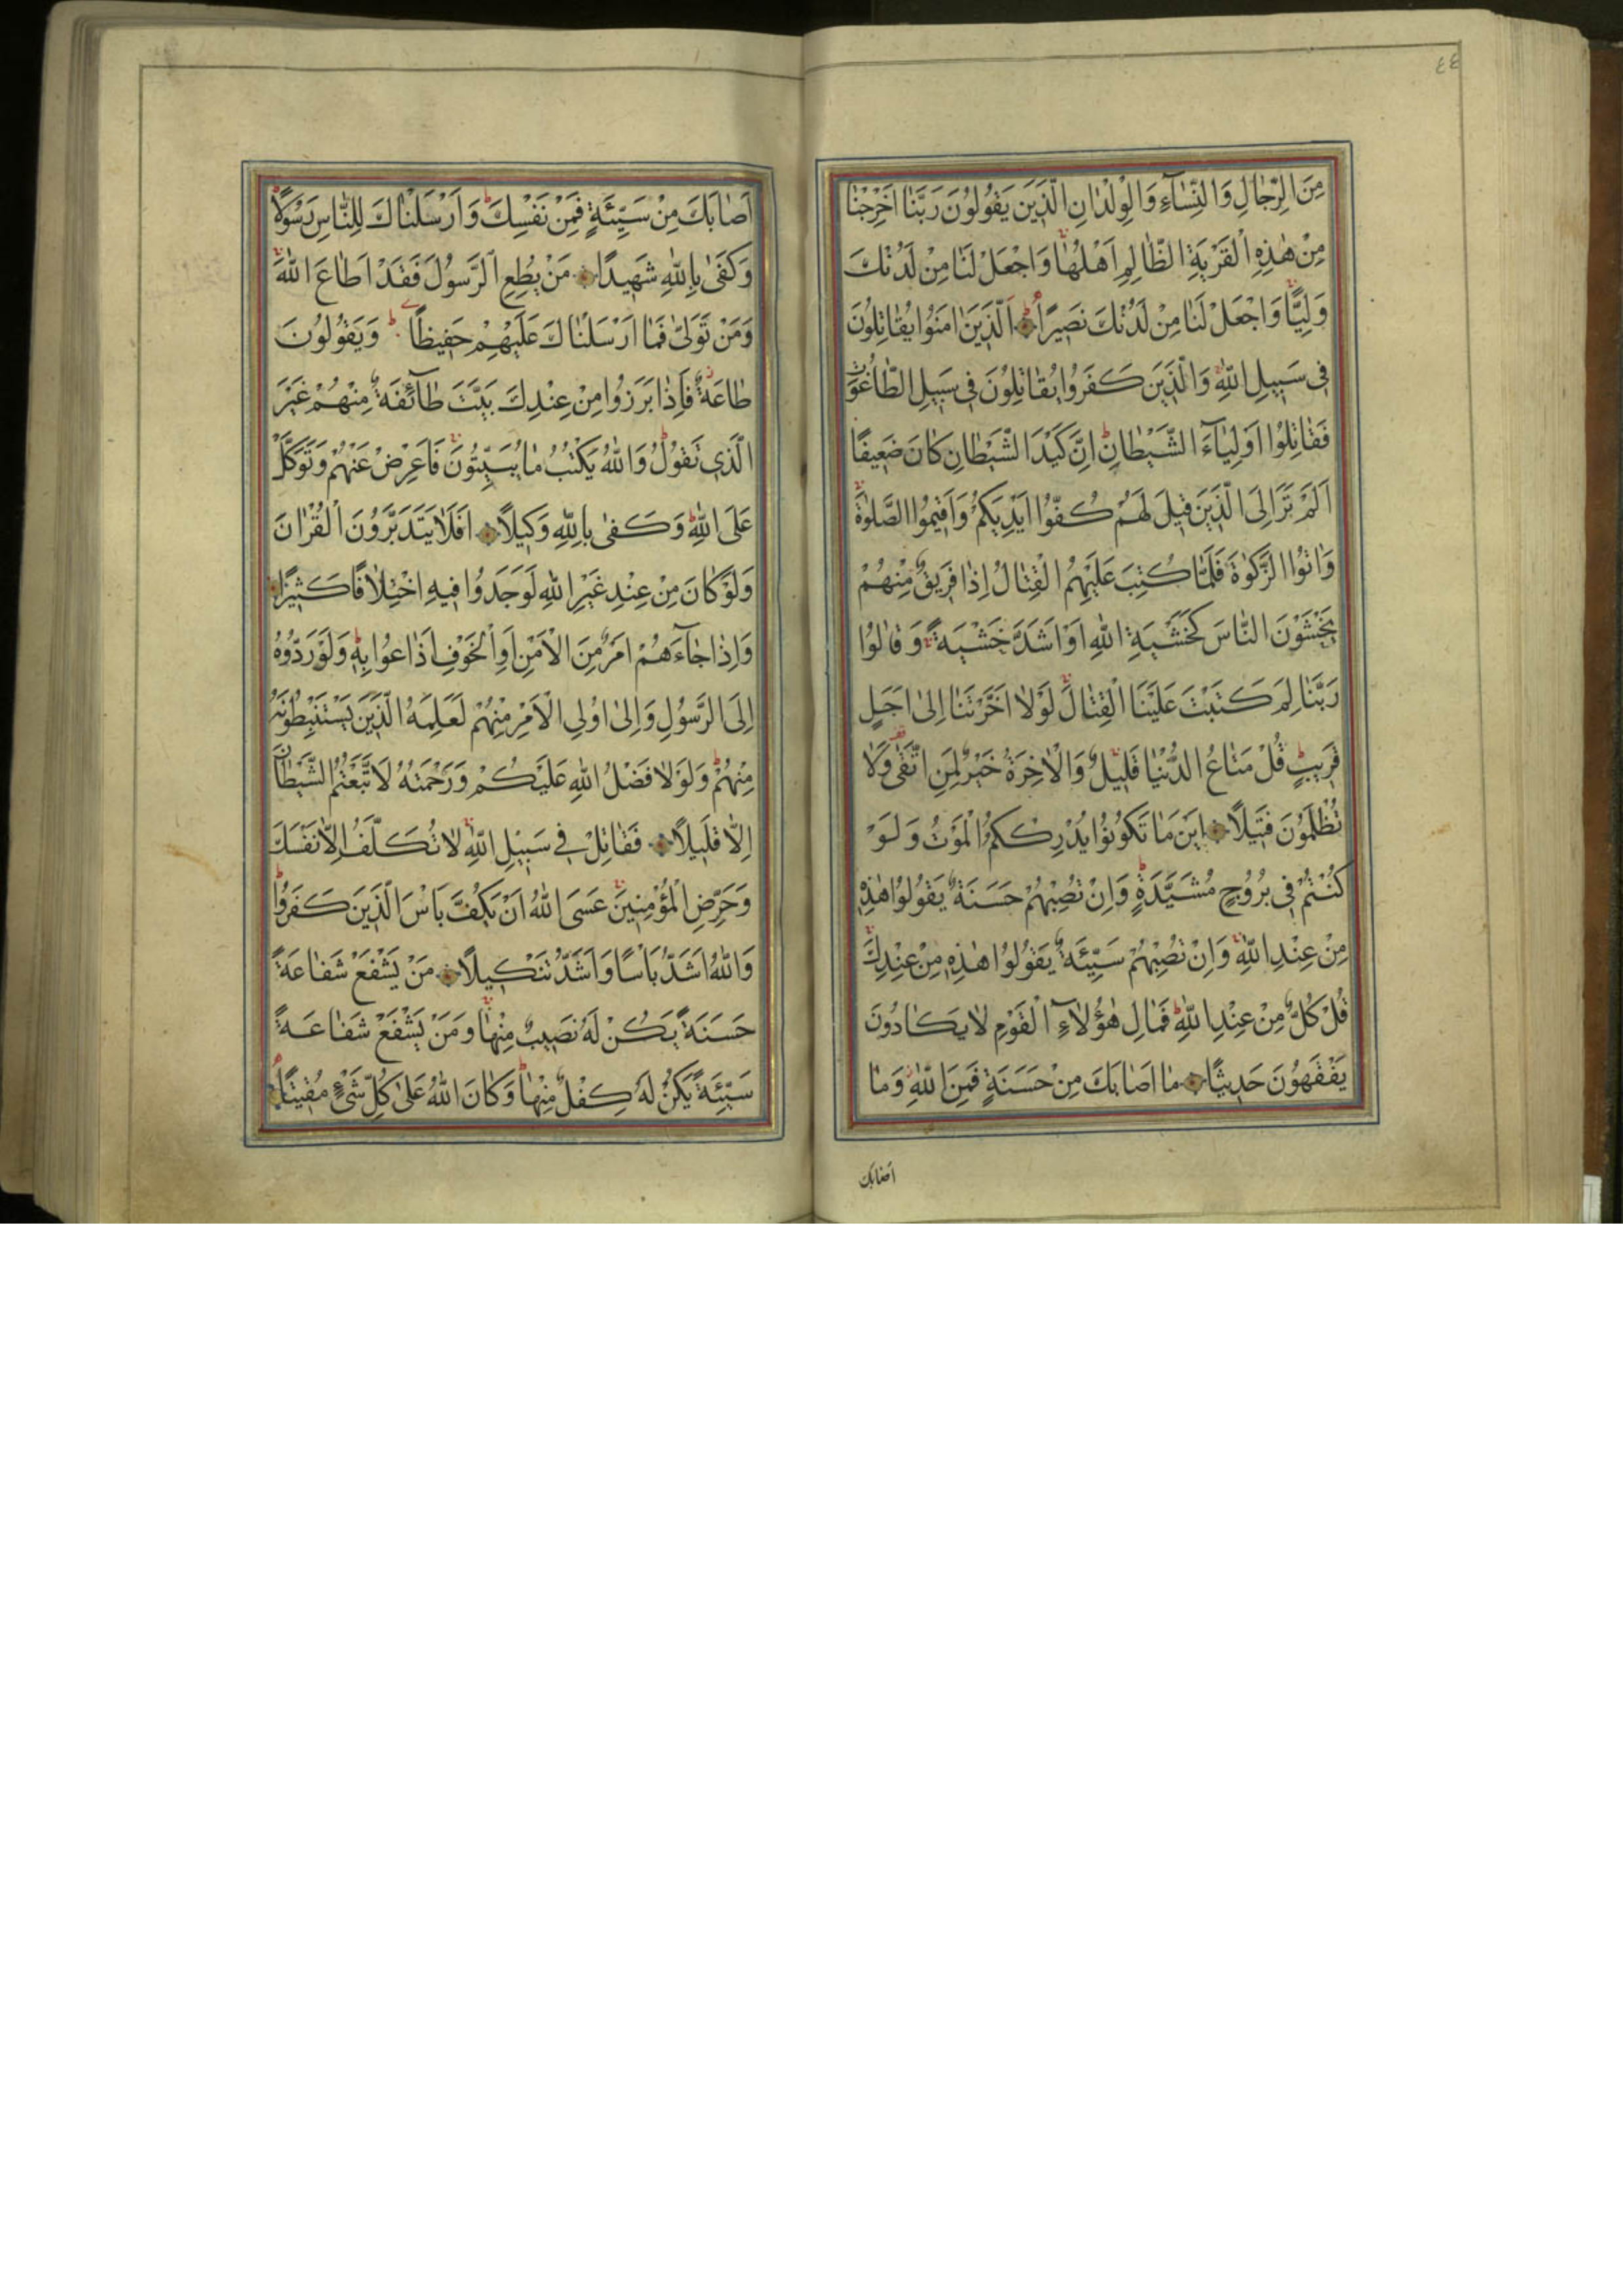 ٤٤
مِنَ الرِّجَالِ وَالنِّسَآءِ وَالْوِلْدَانِ الَّذِينَ يَقُولُونَ رَبَّنَا اَخْرِجْنَا
مِنْ هٰذِهِ الْقَرْيَةِ الظَّالِمِ اَهْلُهَا وَاجْعَلْ لَنَا مِنْ لَدُنْكَ
وَلِيًّا وَاجْعَلْ لَنَا مِنْ لَدُنْكَ نَصِيرًا اَلَّذِينَ اٰمَنُوا يُقَاتِلُونَ
فِي سَبِيلِ اللّٰهِ وَالَّذِينَ كَفَرُوا يُقَاتِلُونَ فِي سَبِيلِ الطَّاغُوتِ
فَقَاتِلُوا اَوْلِيَآءَ الشَّيْطَانِ اِنَّ كَيْدَ الشَّيْطَانِ كَانَ ضَعِيفًا
اَلَمْ تَرَ اِلَى الَّذِينَ قِيلَ لَهُمْ كُفُّوا اَيْدِيَكُمْ وَاَقِيمُوا الصَّلٰوةَ
وَاٰتُوا الزَّكٰوةَ فَلَمَّا كُتِبَ عَلَيْهِمُ الْقِتَالُ اِذَا فَرِيقٌ مِنْهُمْ
يَخْشَوْنَ النَّاسَ كَخَشْيَةِ اللّٰهِ اَوْ اَشَدَّ خَشْيَةً وَقَالُوا
رَبَّنَا لِمَ كَتَبْتَ عَلَيْنَا الْقِتَالَ لَوْلَا اَخَّرْتَنَا اِلٰى اَجَلٍ
قَرِيبٍ قُلْ مَتَاعُ الدُّنْيَا قَلِيلٌ وَالْاٰخِرَةُ خَيْرٌ لِمَنِ اتَّقٰى وَلَا
تُظْلَمُونَ فَتِيلًا اَيْنَ مَا تَكُونُوا يُدْرِكْكُمُ الْمَوْتُ وَلَوْ
كُنْتُمْ فِي بُرُوجٍ مُشَيَّدَةٍ وَاِنْ تُصِبْهُمْ حَسَنَةٌ يَقُولُوا هٰذِهِ
مِنْ عِنْدِ اللّٰهِ وَاِنْ تُصِبْهُمْ سَيِّئَةٌ يَقُولُوا هٰذِهِ مِنْ عِنْدِكَ
قُلْ كُلٌّ مِنْ عِنْدِ اللّٰهِ فَمَالِ هٰٓؤُلَاءِ الْقَوْمِ لَا يَكَادُونَ
يَفْقَهُونَ حَدِيثًا مَا اَصَابَكَ مِنْ حَسَنَةٍ فَمِنَ اللّٰهِ وَمَا
اصابك
اَصَابَكَ مِنْ سَيِّئَةٍ فَمِنْ نَفْسِكَ وَاَرْسَلْنَاكَ لِلنَّاسِ رَسُولًا
وَكَفٰى بِاللّٰهِ شَهِيدًا مَنْ يُطِعِ الرَّسُولَ فَقَدْ اَطَاعَ اللّٰهَ
وَمَنْ تَوَلّٰى فَمَا اَرْسَلْنَاكَ عَلَيْهِمْ حَفِيظًا وَيَقُولُونَ
طَاعَةٌ فَاِذَا بَرَزُوا مِنْ عِنْدِكَ بَيَّتَ طَآئِفَةٌ مِنْهُمْ غَيْرَ
الَّذِي تَقُولُ وَاللّٰهُ يَكْتُبُ مَا يُبَيِّتُونَ فَاَعْرِضْ عَنْهُمْ وَتَوَكَّلْ
عَلَى اللّٰهِ وَكَفٰى بِاللّٰهِ وَكِيلًا اَفَلَا يَتَدَبَّرُونَ الْقُرْاٰنَ
وَلَوْ كَانَ مِنْ عِنْدِ غَيْرِ اللّٰهِ لَوَجَدُوا فِيهِ اخْتِلَافًا كَثِيرًا
وَاِذَا جَآءَهُمْ اَمْرٌ مِنَ الْاَمْنِ اَوِ الْخَوْفِ اَذَاعُوا بِهِ وَلَوْ رَدُّوهُ
اِلَى الرَّسُولِ وَاِلٰى اُولِي الْاَمْرِ مِنْهُمْ لَعَلِمَهُ الَّذِينَ يَسْتَنْبِطُونَهُ
مِنْهُمْ وَلَوْلَا فَضْلُ اللّٰهِ عَلَيْكُمْ وَرَحْمَتُهُ لَاتَّبَعْتُمُ الشَّيْطَانَ
اِلَّا قَلِيلًا فَقَاتِلْ فِي سَبِيلِ اللّٰهِ لَا تُكَلَّفُ اِلَّا نَفْسَكَ
وَحَرِّضِ الْمُؤْمِنِينَ عَسَى اللّٰهُ اَنْ يَكُفَّ بَاْسَ الَّذِينَ كَفَرُوا
وَاللّٰهُ اَشَدُّ بَاْسًا وَاَشَدُّ تَنْكِيلًا مَنْ يَشْفَعْ شَفَاعَةً
حَسَنَةً يَكُنْ لَهُ نَصِيبٌ مِنْهَا وَمَنْ يَشْفَعْ شَفَاعَةً
سَيِّئَةً يَكُنْ لَهُ كِفْلٌ مِنْهَا وَكَانَ اللّٰهُ عَلٰى كُلِّ شَيْءٍ مُقِيتًا